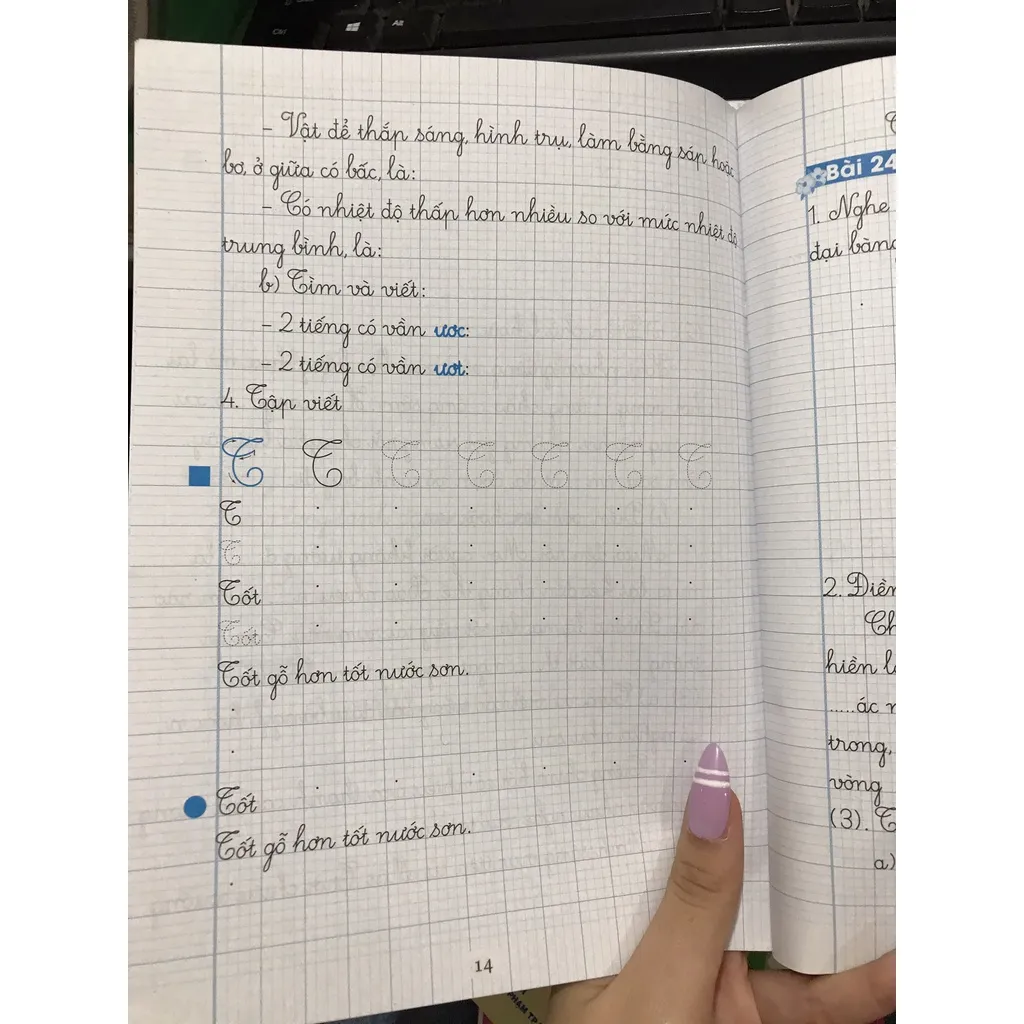 Ctrl
Alt
- Vật để thắp sáng, hình trụ, làm bằng sáp hoặc
bơ, ở giữa có bấc, là:
- Có nhiệt độ thấp hơn nhiều so với mức nhiệt độ
trung bình, là:
b) Tìm và viết:
- 2 tiếng có vần ươc:
- 2 tiếng có vần ươt:
4. Tập viết
T T T T T T T
T
T
Tốt
Tốt
Tốt gỗ hơn tốt nước sơn.
Tốt
Tốt gỗ hơn tốt nước sơn.
14
Bài 24
1. Nghe
đại bàng
2. Điền
Ch
hiền l
.....ác n
trong,
vòng
(3). T
a)
PHẠM TR